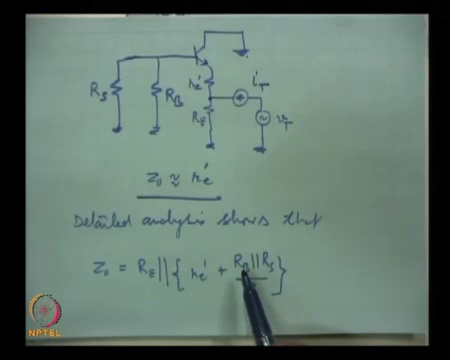 R_S
R_B
r_e'
R_E
i_T
v_T
z_o ≈ r_e'
Detailed analysis shows that
z_o = R_E || { r_e' + R_B || R_S }
NPTEL